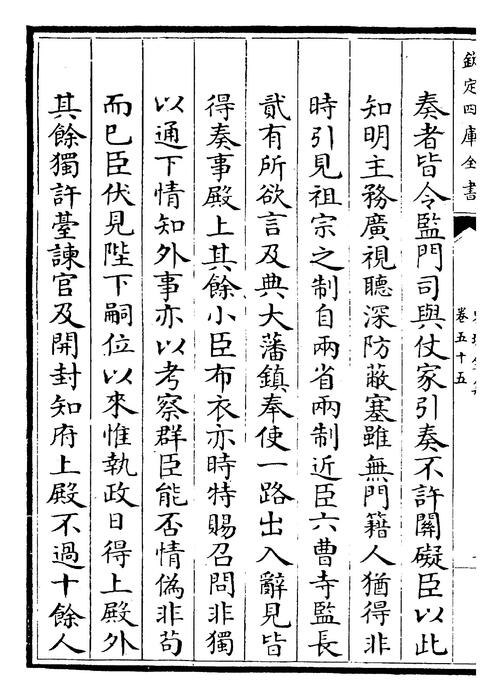 欽定四庫全書
卷五十五
奏者皆令監門司與仗家引奏不許關礙臣以此
知明主務廣視聽深防蔽塞雖無門籍人猶得非
時引見祖宗之制自兩省兩制近臣六曹寺監長
貳有所欲言及典大藩鎮奉使一路出入辭見皆
得奏事殿上其餘小臣布衣亦時特賜召問非獨
以通下情知外事亦以考察群臣能否情偽非苟
而已臣伏見陛下嗣位以來惟執政日得上殿外
其餘獨許臺諫官及開封知府上殿不過十餘人